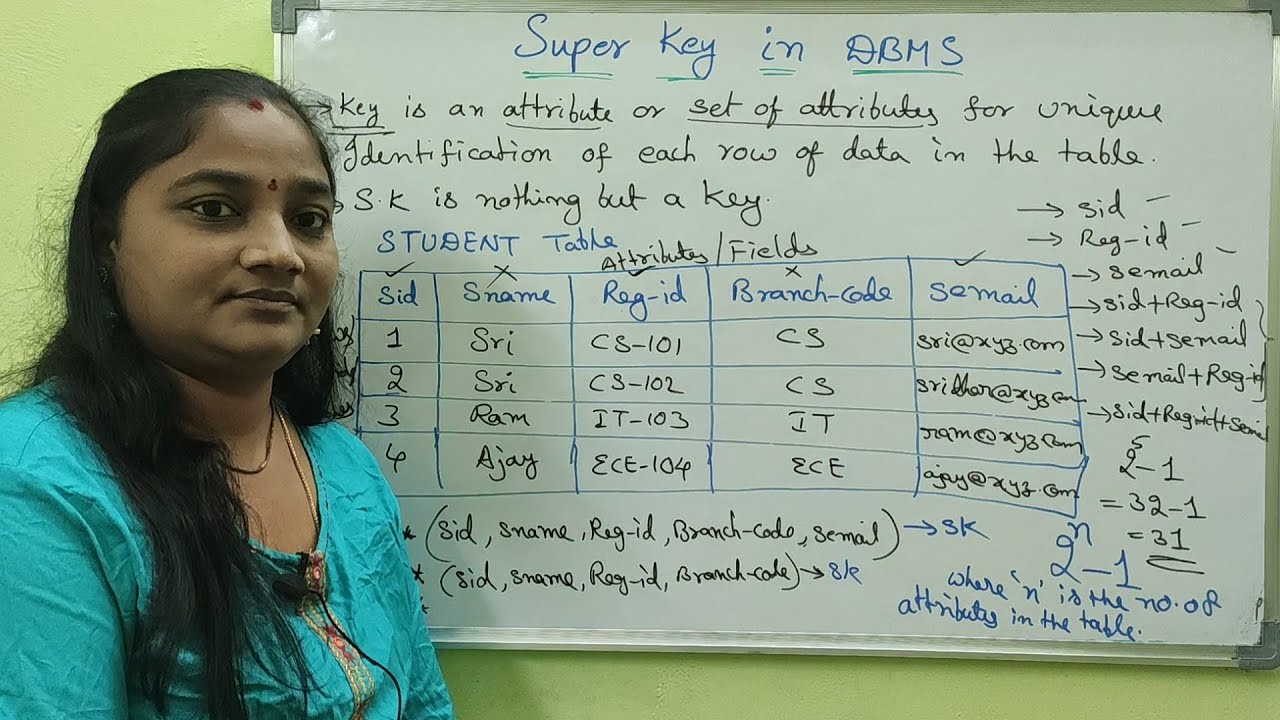 Super Key in DBMS
→ Key is an attribute or set of attributes for unique
Identification of each row of data in the table.
→ S.K is nothing but a key.
STUDENT Table
Attributes/Fields
Sid Sname Reg-id Branch-code Semail
1 Sri CS-101 CS sri@xyz.com
2 Sri CS-102 CS sridhar@xyz.com
3 Ram IT-103 IT ram@xyz.com
4 Ajay ECE-104 ECE ajay@xyz.com
→ Sid
→ Reg-id
→ Semail
→ Sid+Reg-id
→ Sid+Semail
→ Semail+Reg-id
2⁵-1
= 32-1
= 31
* (Sid, Sname, Reg-id, Branch-code, Semail) → SK
* (Sid, Sname, Reg-id, Branch-code) → SK
*
2ⁿ-1
where 'n' is the no. of
attributes in the table.